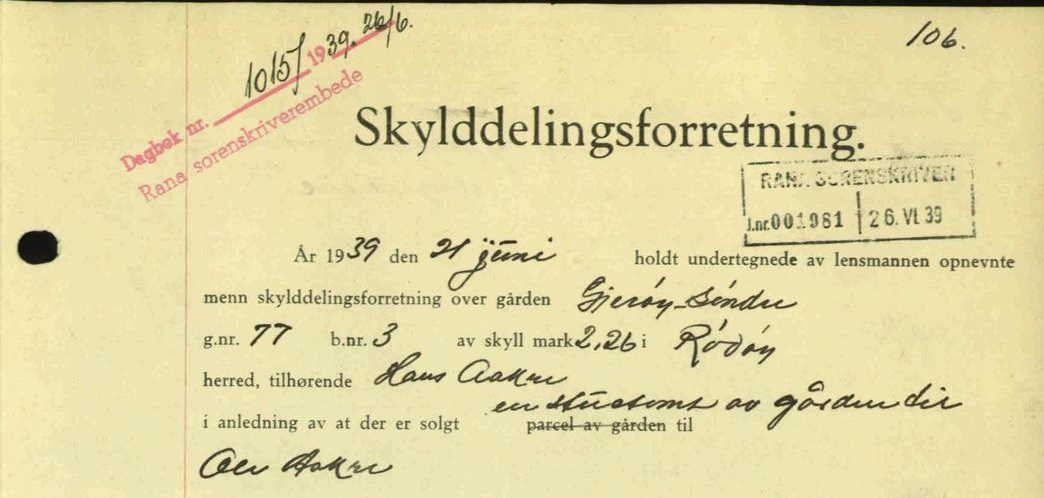 106.
Dagbok nr. 1015/1939. 26/6.
Rana sorenskriverembede
Skylddelingsforretning.
RANA SORENSKRIVER
J.nr. 001981 26. VI. 39
År 1939 den 21 juni holdt undertegnede av lensmannen opnevnte
menn skylddelingsforretning over gården Gjerøy-Søndre
g.nr. 77 b.nr. 3 av skyll mark 2,26 i Rødøy
herred, tilhørende Hans Aakre
en stuetomt av gården til
i anledning av at der er solgt parcel av gården til
Aakre